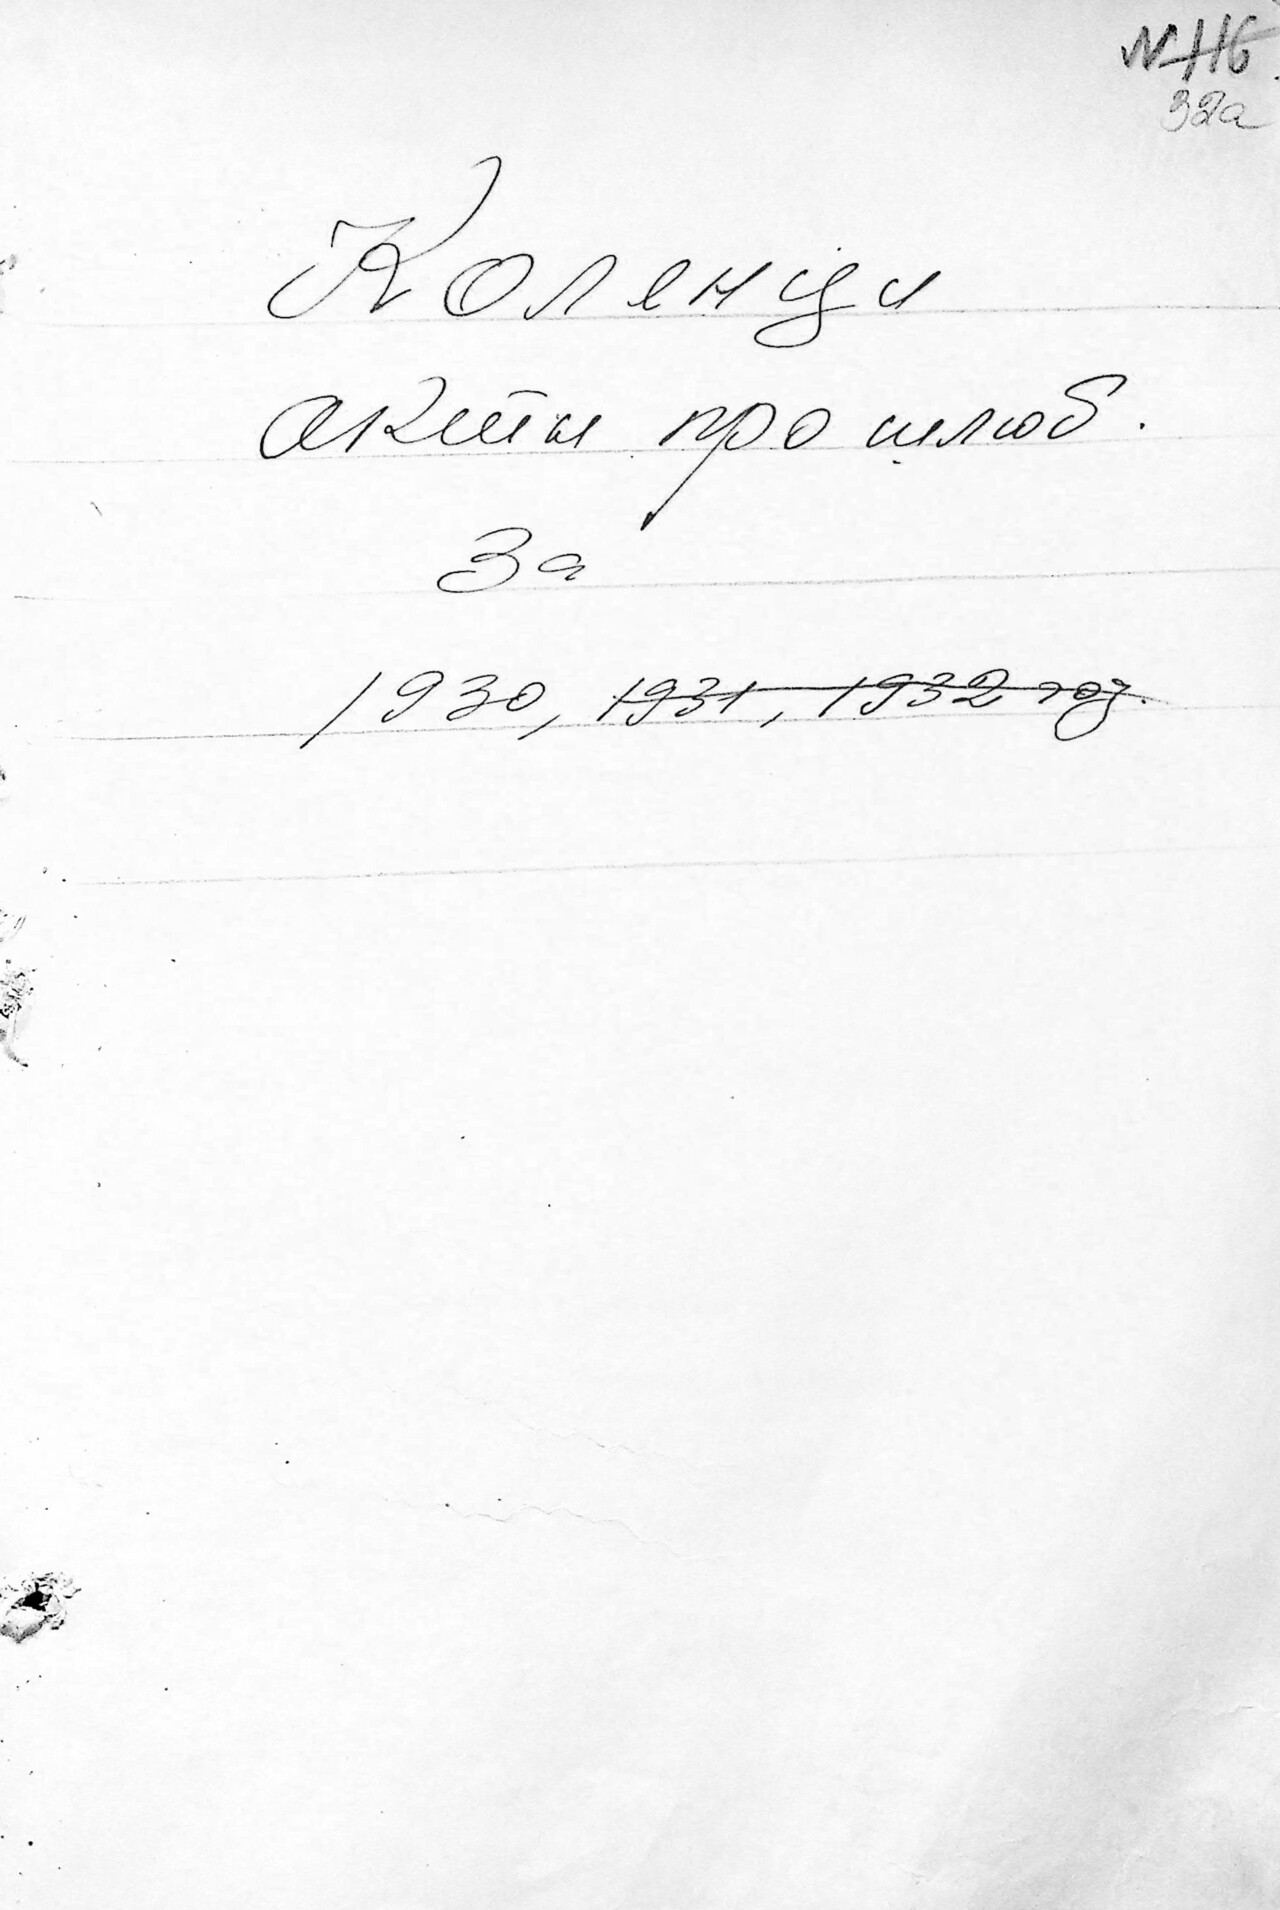 N 116
32а
Коленци
акти про шлюб.
За
1930, 1931, 1932 год.